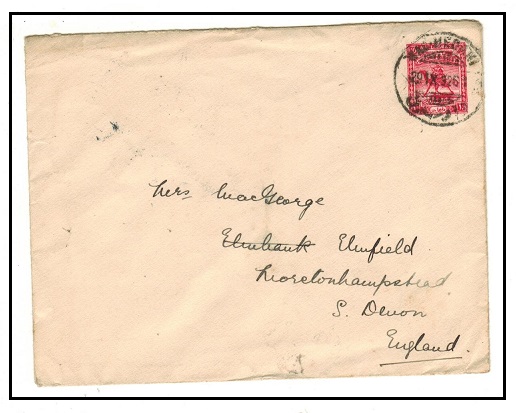 Mrs MacGeorge
Elmbank Elmfield
Moretonhampstead.
S. Devon
England.